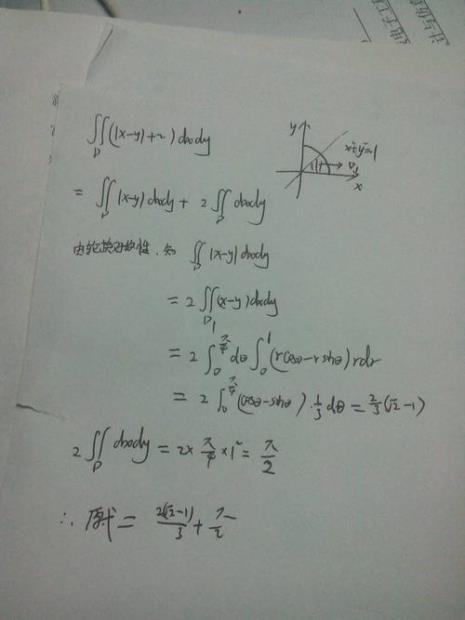 ∬_D (|x-y|+2) dxdy
y
x²+y²=1
D₁
x
= ∬_D |x-y| dxdy + 2∬_D dxdy
由轮换对称性,知 ∬_D |x-y| dxdy
= 2∬_{D₁} (x-y) dxdy
= 2∫₀^{π/4} dθ ∫₀¹ (rcosθ-rsinθ) rdr
= 2∫₀^{π/4} (cosθ-sinθ)·1/3 dθ = 2/3(√2-1)
2∬_D dxdy = 2×π/4×1² = π/2
∴ 原式 = 2(√2-1)/3 + π/2